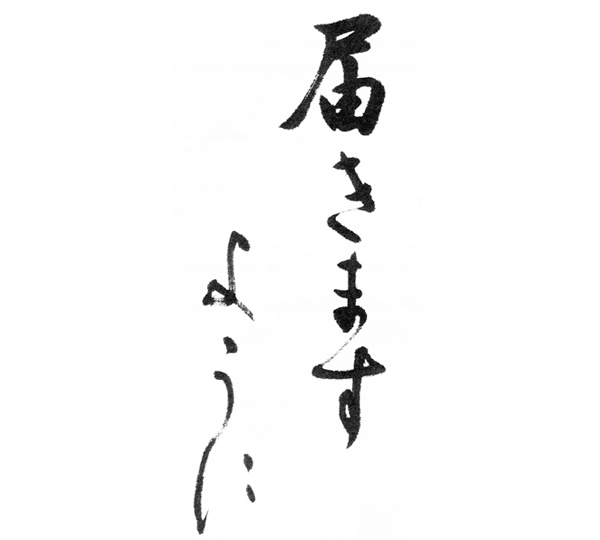 届きます
ように